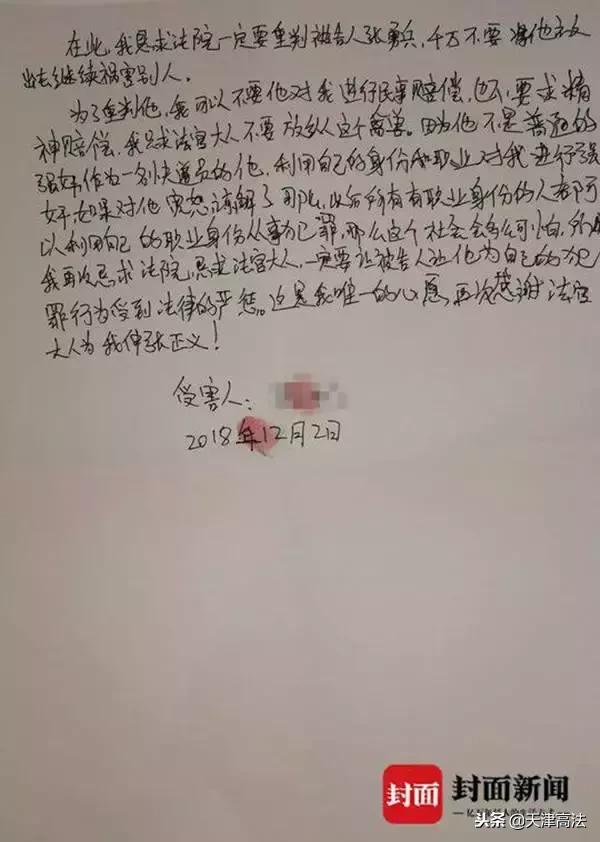 在此,我恳求法院一定要重判被告人张勇兵,千万不要将他放
出去继续祸害别人。
为了重判他,我可以不要他对我进行民事赔偿,也不要求精
神赔偿,我只求法官大人不要放纵这个禽兽。因为他不是普通的
强奸,作为一名快递员的他,利用自己的身份和职业对我进行强
奸,如果对他宽恕谅解了,那以后所有有职业身份的人都可
以利用自己的职业身份从事犯罪,那么这个社会会多么可怕,
我再次恳求法院,恳求法官大人,一定要让被告人让他为自己的犯
罪行为受到法律的严惩。这是我唯一的心愿,再次感谢法官
大人为我伸张正义!
受害人:
2018年12月2日
封面 封面新闻
亿万年轻人的生活方式
头条@天津高法